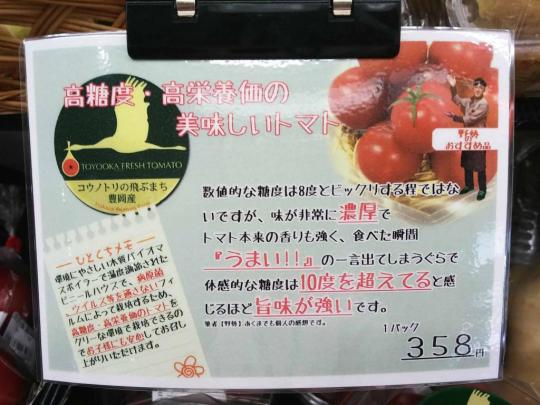 高糖度・高栄養価の
美味しいトマト
TOYOOKA FRESH TOMATO
コウノトリの飛ぶまち
豊岡産
野勢
の
おすすめ品
数値的な糖度は8度とビックリする程ではな
いですが、味が非常に濃厚で
トマト本来の香りも強く、食べた瞬間
『うまい!!』の一言出てしまうぐらい
体感的な糖度は10度を超えてると感
じるほど旨味が強いです。
筆者【野勢】あくまでも個人の感想です。
ひとくちメモ
環境にやさしい木質バイオマ
スボイラーで温度調節された
ビニールハウスで、病原菌
ウイルス等を通さないフィ
ルムによって栽培するため、
高糖度・高栄養価のトマトを
クリーンな環境で栽培できるの
でお子様にも安心してお召し
上がりいただけます。
1パック
358円